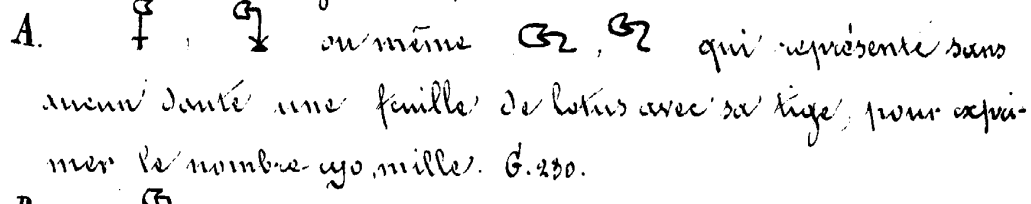 A. 𓆼, 𓆼 ou même 𓆼, 𓆼 qui représente sans
aucun doute une feuille de lotus avec sa tige, pour expri-
mer le nombre ϣο, mille. G. 230.
B.